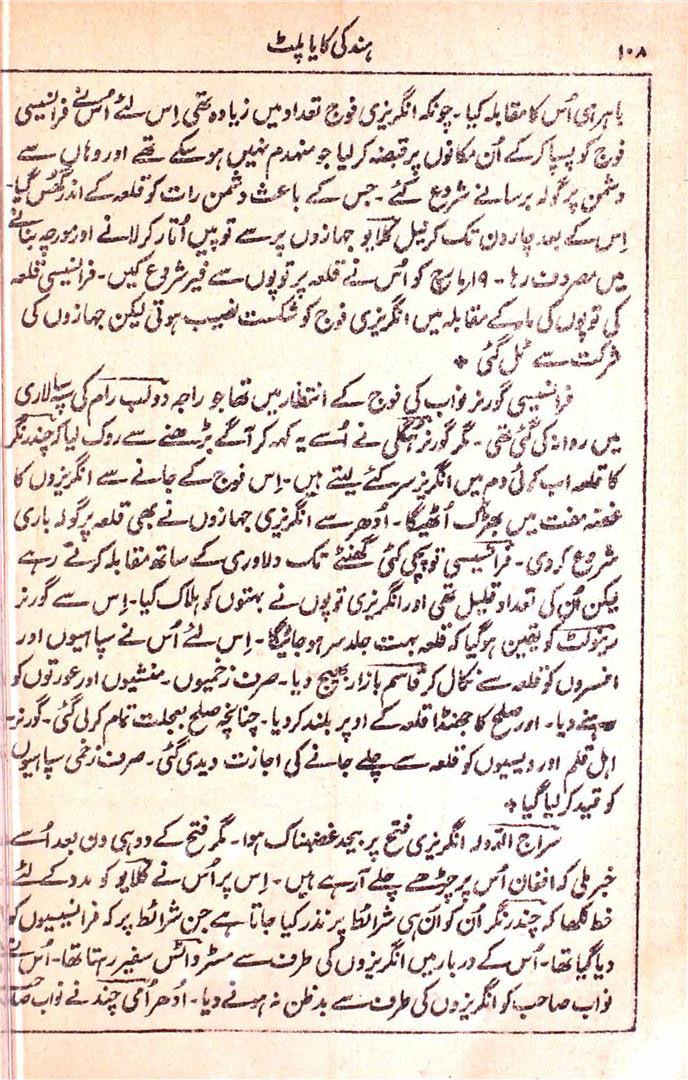 ۱۰۸
ہند کی کایا پلٹ
باہر ہی اُس کا مقابلہ کیا۔ چونکہ انگریزی فوج تعداد میں زیادہ تھی اِس لئے اُس نے فرانسیسی
فوج کو پسپا کر کے اُن مکانوں پر قبضہ کر لیا جو منہدم نہیں ہو سکے تھے اور وہاں سے
دشمن پر گولہ برسانے شروع کئے۔ جس کے باعث دشمن رات کو قلعہ کے اندر گھس گیا۔
اِس کے بعد چار دن تک کرنیل کلایو جہازوں پر سے توپیں اُتار کر لانے اور مورچہ بنانے
میں مصروف رہا۔ ۱۹ مارچ کو اُس نے قلعہ پر توپوں سے فیر شروع کیں۔ فرانسیسی قلعہ
کی توپوں کی مار کے مقابلہ میں انگریزی فوج کو شکست نصیب ہوتی لیکن جہازوں کی
شرکت سے ٹل گئی *
فرانسیسی گورنر نواب کی فوج کے انتظار میں تھا جو راجہ دولب رام کی سپہ سالاری
میں روانہ کی گئی تھی۔ مگر گورنر ہگلی نے اُسے یہ کہہ کر آگے بڑھنے سے روک لیا کہ چندرنگر
کا قلعہ اب کوئی دم میں انگریز سر کئے لیتے ہیں۔ اِس فوج کے جانے سے انگریزوں کا
غصہ مفت میں بھڑک اُٹھیگا۔ اُدھر سے انگریزی جہازوں نے بھی قلعہ پر گولہ باری
شروع کر دی۔ فرانسیسی توپچی کئی گھنٹے تک دلاوری کے ساتھ مقابلہ کرتے رہے
لیکن اُن کی تعداد قلیل تھی اور انگریزی توپوں نے بہتوں کو ہلاک کیا۔ اِس سے گورنر
کو یقین ہو گیا کہ قلعہ بہت جلد سر ہو جائیگا۔ اِس لئے اُس نے سپاہیوں اور
افسروں کو قلعہ سے نکال کر قاسم بازار بھیج دیا۔ صرف زخمیوں۔ منشیوں اور عورتوں کو
رہنے دیا۔ اور صلح کا جھنڈا قلعہ کے اوپر بلند کر دیا۔ چنانچہ صلح بعجلت تمام کر لی گئی۔ گورنر۔
اہل قلم اور دیسیوں کو قلعہ سے چلے جانے کی اجازت دیدی گئی۔ صرف زخمی سپاہیوں
کو قید کر لیا گیا *
سراج الدولہ انگریزی فتح پر بیحد غضبناک ہوا۔ مگر فتح کے دو ہی دن بعد اُسے
خبر ملی کہ افغان اُس پر چڑھے چلے آ رہے ہیں۔ اِس پر اُس نے کلایو کو مدد کے لئے
خط لکھا کہ چندرنگر اُن کو اُن ہی شرائط پر نذر کیا جاتا ہے جن شرائط پر کہ فرانسیسیوں کو
دیا گیا تھا۔ اُس کے دربار میں انگریزوں کی طرف سے مسٹر واٹس سفیر رہتا تھا۔ اُس نے
نواب صاحب کو انگریزوں کی طرف سے بدظن نہ ہونے دیا۔ اُدھر اُمی چند نے نواب صاحب